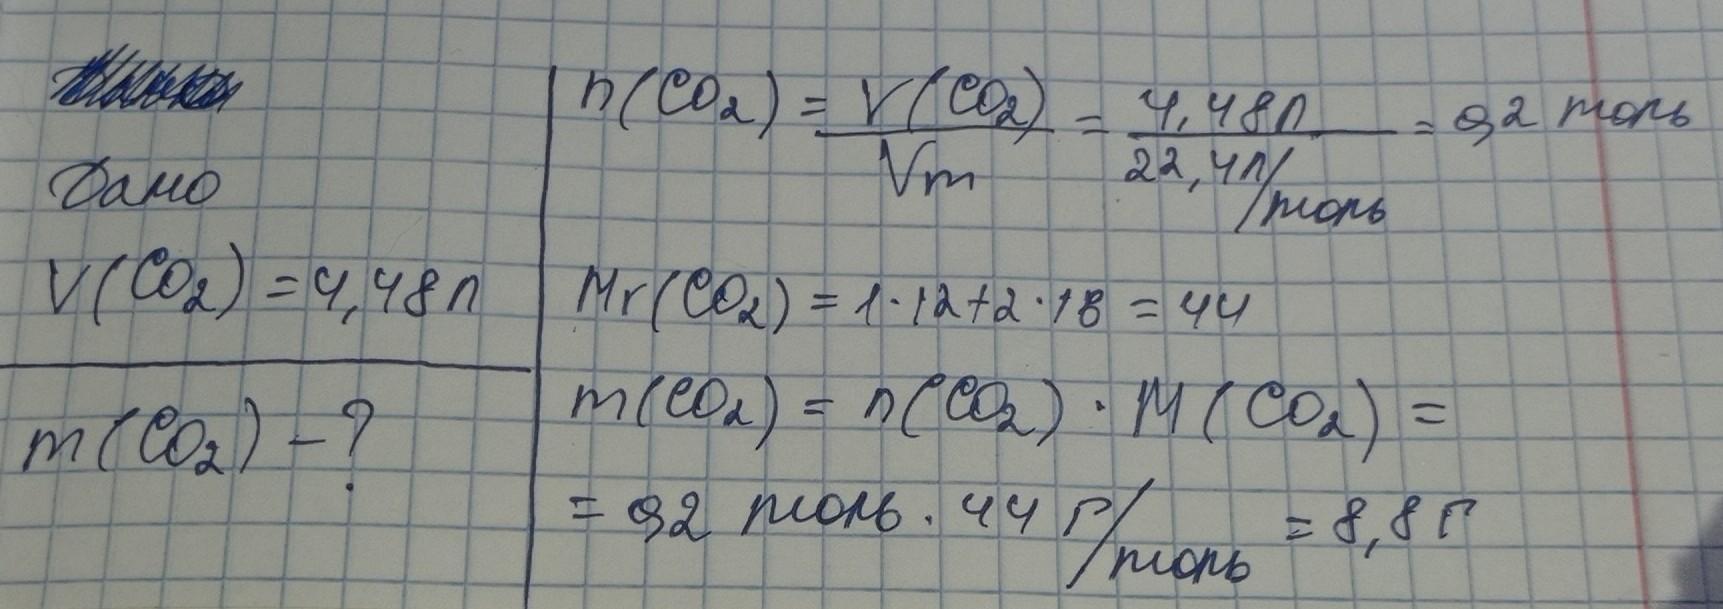 Дано
V(CO₂) = 4,48л
m(CO₂) - ?
n(CO₂) = V(CO₂)/Vm = 4,48л/22,4л/моль = 0,2 моль
Mr(CO₂) = 1·12+2·16 = 44
m(CO₂) = n(CO₂) · M(CO₂) =
= 0,2 моль · 44 г/моль = 8,8г